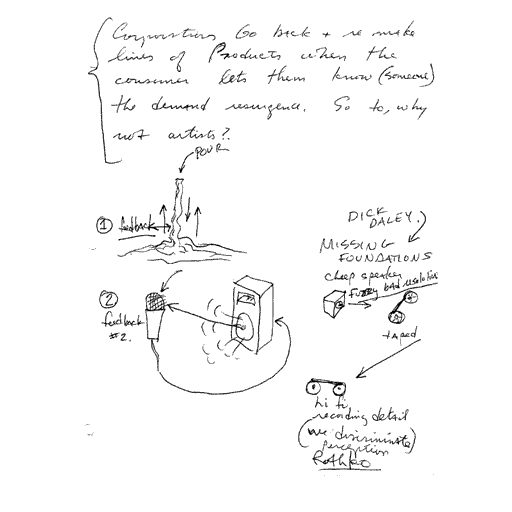 Corporations Go back + re make
lines of Products when the
consumer lets them know (someone)
the demand resurgence. So to, why
not artists?
POUR
① feedback
DICK
DALEY.
MISSING
FOUNDATIONS
cheap speaker
FUZZY bad resolution
② 
feedback
#2.
taped
hi fi
recording detail
(we discriminate)
perception
Rothko